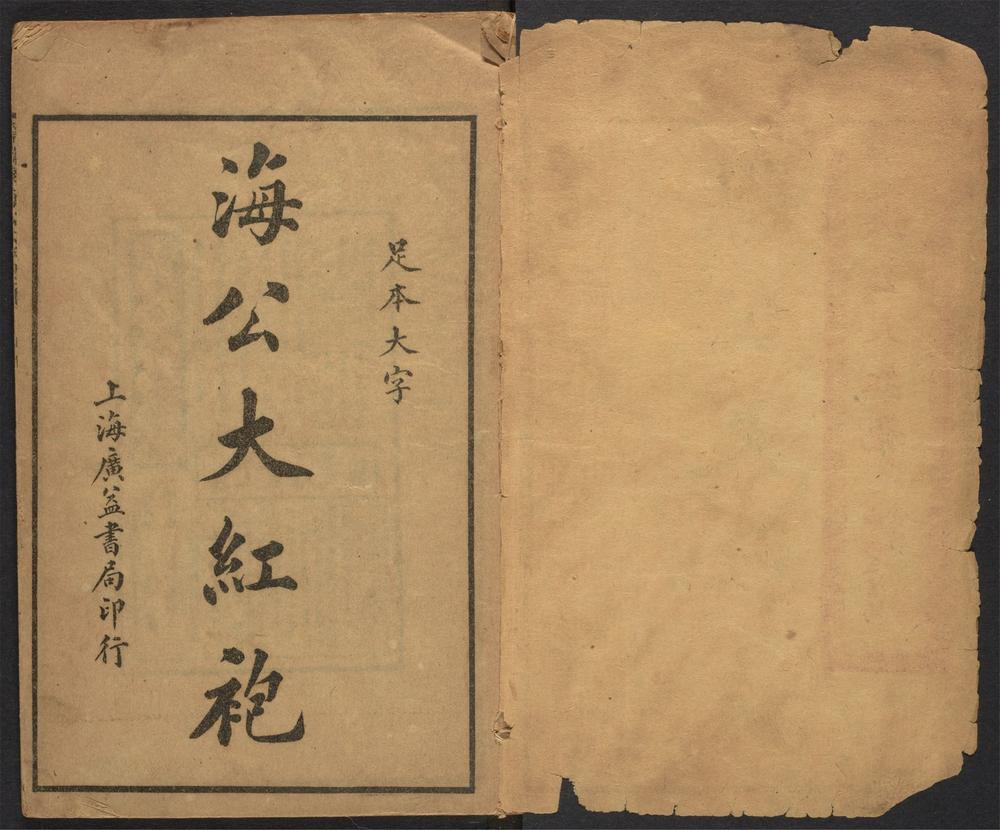 足本大字
海公大紅袍
上海廣益書局印行